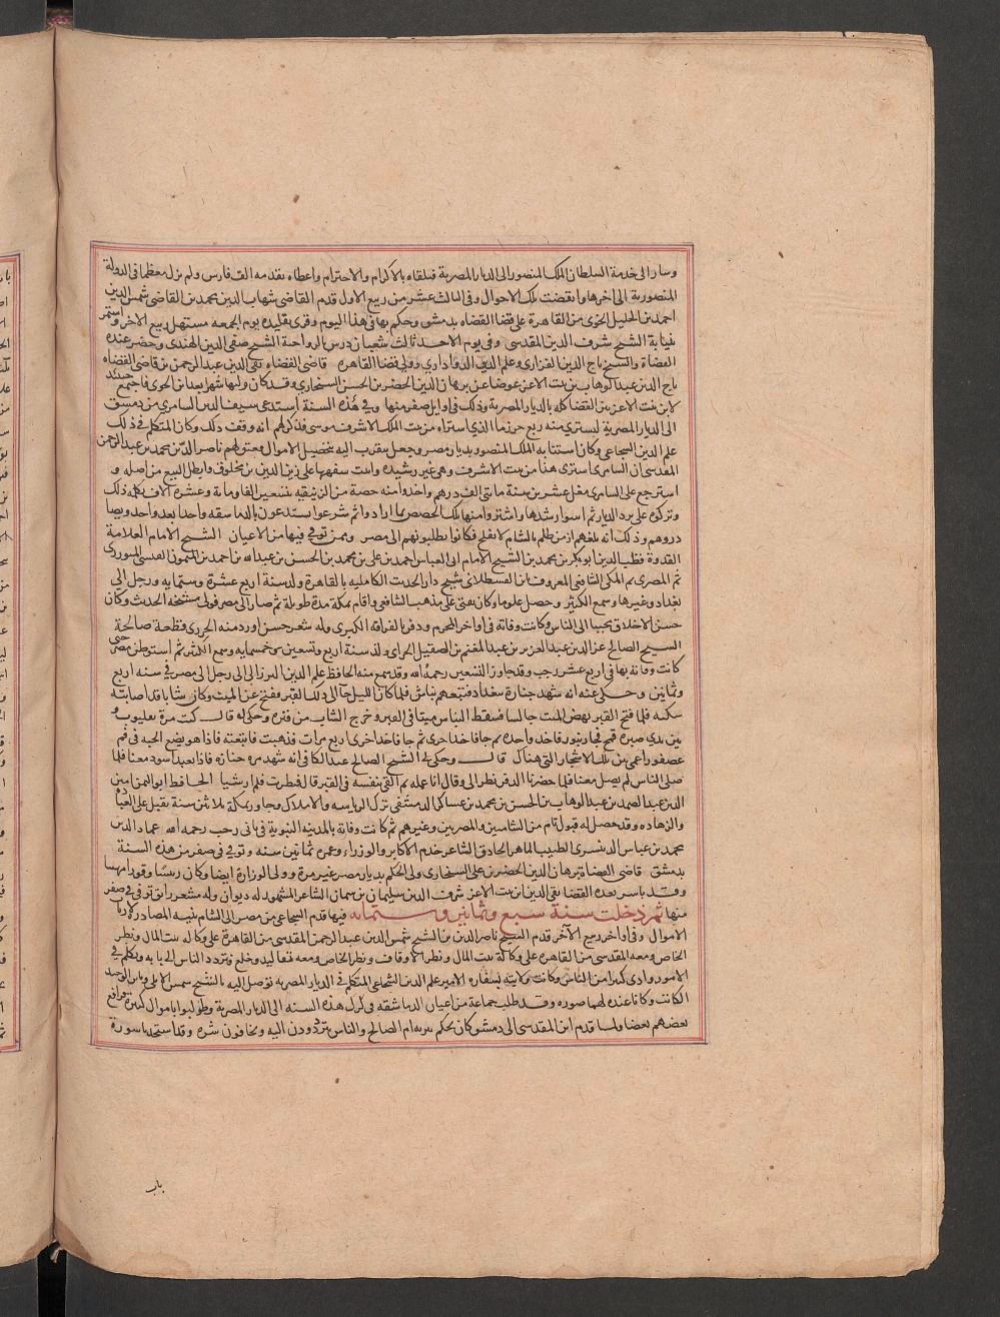 وسار الى خدمة السلطان الملك المنصور الى الديار المصرية فتلقاه بالاكرام والاحترام واعطاه تقدمه الف فارس ولم يزل معظما فى الدولة
المنصورية الى اخرها وانقضت تلك الاحوال وفى الثالث عشر من ربيع الاول قدم القاضى شهاب الدين محمد بن القاضى شمس الدين
احمد بن الخليل الخوى من القاهرة على قضا القضاه بدمشق وحكم بها فى هذا اليوم وقرى تقليده يوم الجمعه مستهل ربيع الاخر واستمر
بنيابة الشيخ شرف الدين المقدسى وفى يوم الاحد ثالث شعبان درس بالرواحية الشيخ صفى الدين الهندى وحضر عنده
القضاة والشيخ تاج الدين الفزارى وعلم الدين الدواداري وولى قضا القاهره قاضى القضاه تقى الدين عبد الرحمن بن قاضى القضاه
تاج الدين عبد الوهاب بن بنت الاعز عوضا عن برهان الدين الخضر بن الحسن السنجارى وقد كان وليها شهرا بعد ابن الخوى فاجتمع حينئذ
لابن بنت الاعز بين القضا كله بالديار المصرية وذلك فى اوايل صفر منها وفي هذه السنة استدعى سيف الدين السامرى من دمشق
الى الديار المصرية ليشتري منه ربع حرزما الذى اشتراه من بنت الملك الاشرف موسى فذكر لهم انه وقف ذلك وكان المتكلم فى ذلك
علم الدين الشجاعى وكان استنابه الملك المنصور بديار مصر وجعل يتقرب اليه بتحصيل الاموال ففتق لهم ناصر الدين محمد بن عبد الرحمن
المقدسى ان السامرى اشترى هذا من بنت الاشرف وهى غير رشيده واثبت سفهها على زين الدين بن مخلوف وابطل البيع من اصله و
استرجع على السامرى مغل عشرين سنة مائتى الف درهم واخذوا منه حصة من الزنبقيه بتسعين الفا ومائة وعشرة الاف تكملة ذلك
وتركوه على برد الديار ثم اثبتوا رشدها واشتروا منها تلك الحصص بما ارادوا ثم شرعوا يستدعون بالدماشقه واحدا بعد واحد ويصا
دروهم وذلك انه بلغهم ان من ظلم بالشام لا يفلح فكانوا يطلبونهم الى مصر وممن توفي فيها من الاعيان الشيخ الامام العلامة
القدوة قطب الدين ابو بكر بن محمد بن الشيخ الامام ابى العباس احمد بن على بن محمد بن الحسن بن عبد الله بن احمد بن الميمون القيسى التوزرى
ثم المصرى ثم المكى الشافعى المعروف بابن القسطلانى شيخ دار الحديث الكامليه بالقاهرة ولد سنة اربع عشرة وستمايه ورحل الى
بغداد وغيرها وسمع الكثير وحصل علوما وكان يفتى على مذهب الشافعى واقام بمكة مدة طويلة ثم صار الى مصر فولى مشيخة الحديث وكان
حسن الاخلاق محببا الى الناس وكانت وفاته فى اواخر المحرم ودفن بالقرافه الكبرى وله شعر حسن اورد منه الجزرى قطعة صالحة
الشيخ الصالح عز الدين عبد العزيز بن عبد المنعم بن الصقيل الحرانى ولد سنة اربع وتسعين وخمسمايه وسمع الكثير ثم استوطن مصر حتى
كانت وفاته بها فى رابع عشر رجب وقد جاوز التسعين رحمه الله وقد سمع منه الحافظ علم الدين البرزالى لما رحل الى مصر فى سنه اربع
وثمانين وحكى عنه انه شهد جنازة ببغداد فتبعهم نباش فلما كان الليل جا الى ذلك القبر ففتح عن الميت وكان شابا قد اصابته
سكته فلما فتح القبر نهض الميت جالسا فسقط النباش ميتا فى القبر وخرج الشاب من قبره وحكى له قال كنت مرة بقليوب و
بين يدى صبرة قمح فجا زنبور فاخذ واحدة ثم جا فاخذ اخرى ثم جا فاخذ اخرى اربع مرات فذهبت فاتبعته فاذا هو يضع الحبه فى فم
عصفور اعمى بين تلك الاشجار التى هناك قال وحكى لى الشيخ الصالح عبد الكافى انه شهد مره جنازه فاذا عبد اسود معنا فلما
صلى الناس لم يصل معنا فلما حضرنا الدفن نظر الى وقال انا عمله ثم القى نفسه فى القبر قال فنظرت فلم ار شيا الحافظ ابو اليمن امين
الدين عبد الصمد بن عبد الوهاب بن الحسن بن محمد بن عساكر الدمشقى ترك الرياسه والاملاك وجاور بمكة ثلاثين سنة يقبل على العبادة
والزهاده وقد حصل له قبول تام من الشاميين والمصريين وغيرهم ثم كانت وفاته بالمدينه النبوية فى ثانى رجب رحمه الله عماد الدين
محمد بن عباس الدنيسرى الطبيب الماهر الحاذق الشاعر خدم الاكابر والوزراء وعمره ثمانين سنه وتوفي فى صفر من هذه السنة
بدمشق قاضى القضاة برهان الدين الخضر بن على السنجارى ولى الحكم بديار مصر غير مرة وولى الوزارة ايضا وكان رئيسا وقورا مهيبا
وقد باشر بعده القضا تقى الدين ابن بنت الاعز شرف الدين سليمان بن بنيمان الشاعر المشهور له ديوان وله شعر رائق توفى فى صفر
منها ثم دخلت سنة سبع وثمانين وستمائه فيها قدم الشجاعى من مصر الى الشام بنيه المصادرة لارباب
الاموال وفى اواخر ربيع الآخر قدم الشيخ ناصر الدين بن الشيخ شمس الدين عبد الرحمن المقدسى من القاهرة على وكالة بيت المال ونظر
الخاص ومعه المقدسى من القاهرة على وكالة بيت المال ونظر الاوقاف ونظر الخاص ومعه تقاليد وخلع فتردد الناس الى بابه وتكلم في
الامور واذى كثيرا من الناس وكانت ولايته بسفارة الامير علم الدين الشجاعى المتكلم فى الديار المصريه توصل اليه بالشيخ شمس الايكى وبابن الوحيد
الكاتب وكانا عنده لهما صوره وقد طلب جماعة من اعيان الدماشقه فى اول هذه السنه الى الديار المصرية وطولبوا باموال كثيرة فدافع
بعضهم بعضا ولما قدم ابن المقدسى الى دمشق كان يحكم بتربه ام الصالح والناس يترددون اليه ويخافون شره وقد استجد باسورة
باب